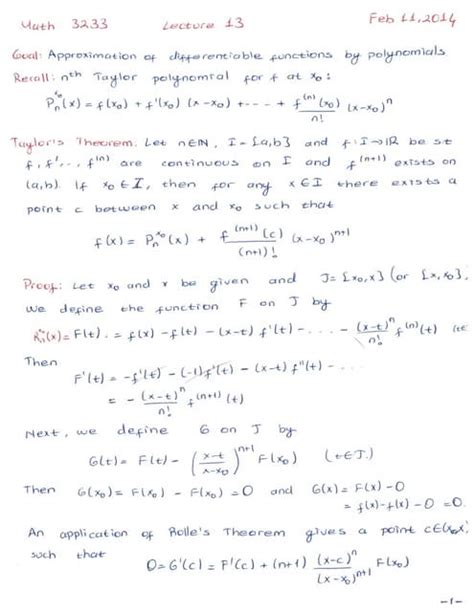 Math 3233 Lecture 13 Feb 11, 2014
Goal: Approximation of differentiable functions by polynomials
Recall: nth Taylor polynomial for f at x₀:
Pₙˣ⁰(x) = f(x₀) + f'(x₀) (x-x₀) + --- + f⁽ⁿ⁾(x₀)/n! (x-x₀)ⁿ
Taylor's Theorem: Let n∈ℕ, I = [a,b] and f: I→ℝ be st
f, f', .., f⁽ⁿ⁾ are continuous on I and f⁽ⁿ⁺¹⁾ exists on
(a,b). If x₀ ∈ I, then for any x ∈ I there exists a
point c between x and x₀ such that
f(x) = Pₙˣ⁰(x) + f⁽ⁿ⁺¹⁾(c)/(n+1)! (x-x₀)ⁿ⁺¹
Proof: Let x₀ and x be given and J = [x₀,x] (or [x,x₀].
We define the function F on J by
Rₙˣ⁰(x) = F(t) := f(x) - f(t) - (x-t) f'(t) - ... - (x-t)ⁿ/n! f⁽ⁿ⁾(t)
Then
F'(t) = -f'(t) - (-1)f'(t) - (x-t) f''(t) - ...
= - (x-t)ⁿ/n! f⁽ⁿ⁺¹⁾(t)
Next, we define G on J by
G(t) = F(t) - ((x-t)/(x-x₀))ⁿ⁺¹ F(x₀) (t∈J.)
Then G(x₀) = F(x₀) - F(x₀) = 0 and G(x) = F(x) - 0
= f(x)-f(x) - 0 = 0.
An application of Rolle's Theorem gives a point c∈(x₀,x)
such that
0 = G'(c) = F'(c) + (n+1) (x-c)ⁿ/(x-x₀)ⁿ⁺¹ F(x₀)
-1-